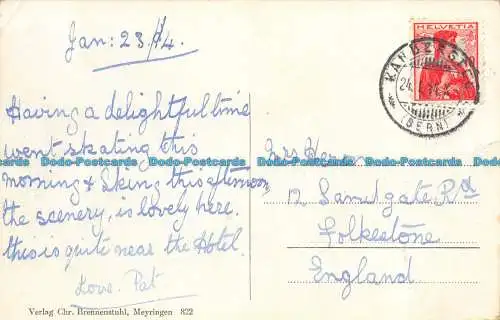 Jan: 23rd/14.
HELVETIA
KANDERSTEG
(BERN)
Having a delightful time
went skating this
morning & Skiing this afternoon
the scenery, is lovely here.
this is quite near the Hotel.
Love. Pat
12 Sandgate Rd
Folkestone
England
Verlag Chr. Brennenstuhl, Meyringen 822
Dodo-Postcards Dodo-Postcards Dodo-Postcards Dodo-Postcards
Dodo-Postcards Dodo-Postcards Dodo-Postcards Dodo-Postcards